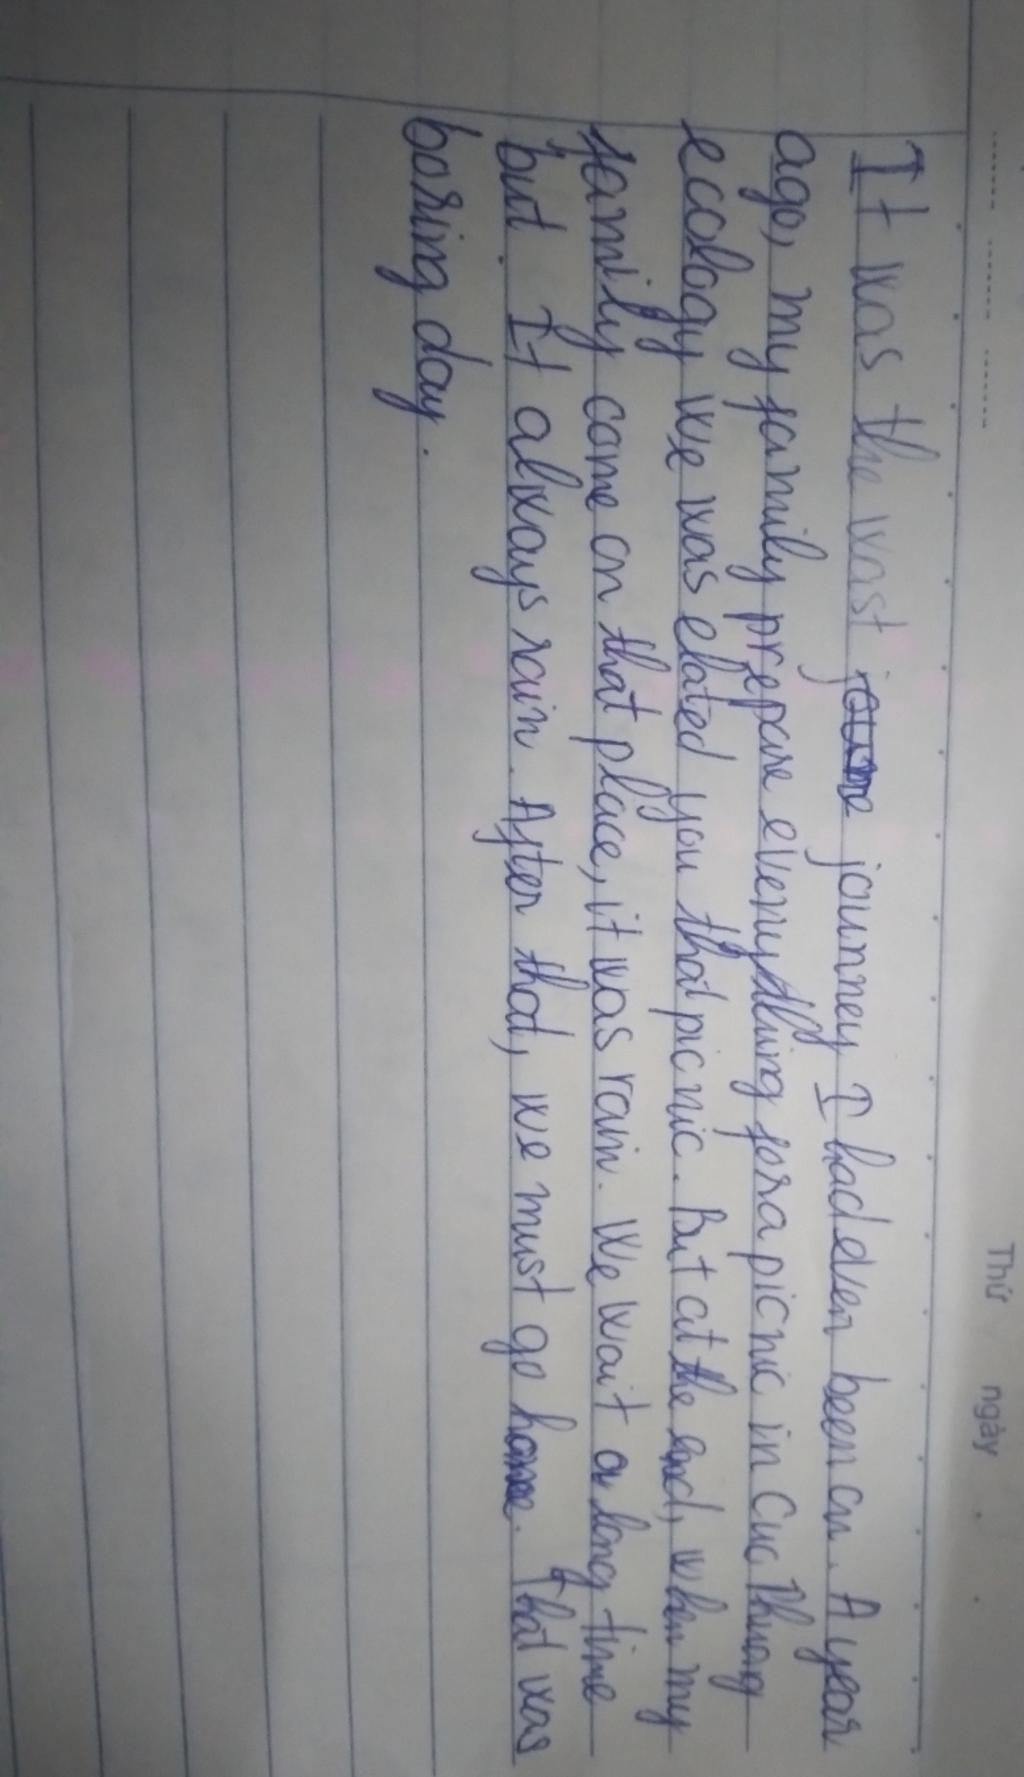 Thứ ngày
It was the wost journey I had ever been on. A year
ago, my family prepare everything for a picnic in Cuc Phuong
ecology we was elated you that picnic. But at the end, when my
family come on that place, it was rain. We wait a long time
but It always rain. After that, we must go home. That was
boring day.